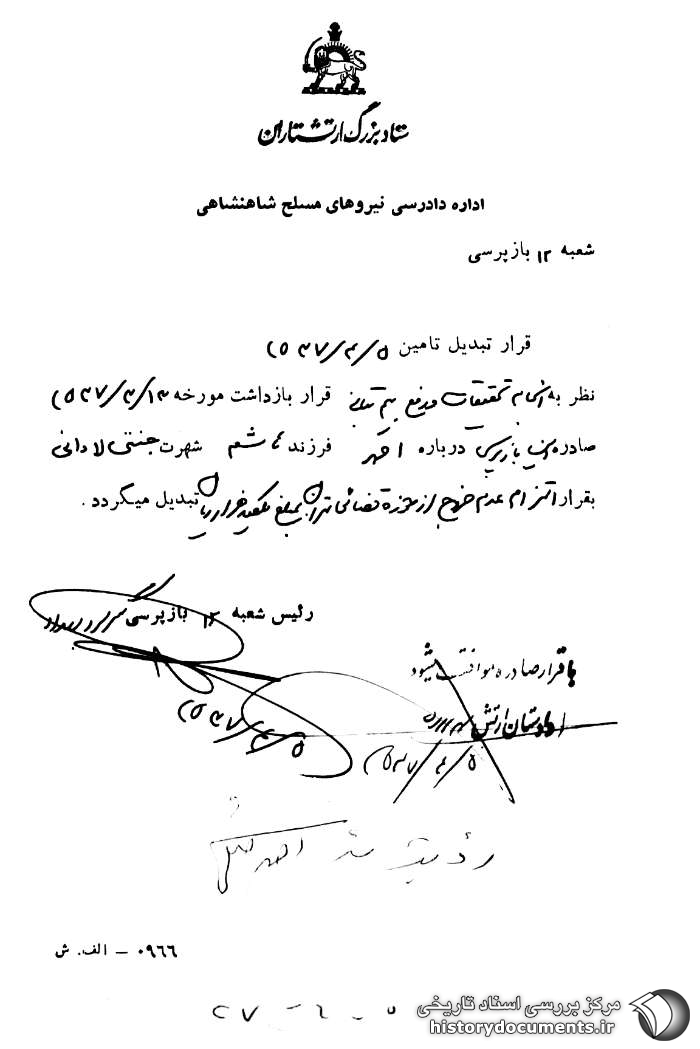 ستاد بزرگ ارتشتاران
اداره دادرسی نیروهای مسلح شاهنشاهی
شعبه ۱۲ بازپرسی
قرار تبدیل تامین ۲۵۳۷/۴/۵
نظر به اتمام تحقیقات و رفع بیم تبانی قرار بازداشت مورخه ۲۵۳۷/۳/۱۳
صادره این بازپرسی درباره احمد فرزند هاشم شهرت جنتی لادانی
بقرار التزام عدم خروج از حوزه قضائی تهران بمبلغ یکصد هزار ریال تبدیل میگردد.
رئیس شعبه ۱۲ بازپرسی
۲۵۳۷/۴/۵
با قرار صادره موافقت میشود
دادستان ارتش
۲۵۳۷/۴/۵
رؤیت شد احمد جنتی
۰۹۶۶ – الف. ش
۳۷ - ۴ - ۵
مرکز بررسی اسناد تاریخی
historydocuments.ir